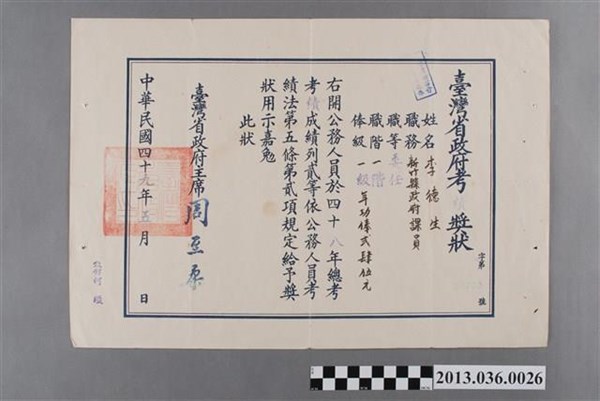 臺灣省政府考績獎狀
字第 號
姓名 李德生
職務 新竹縣政府課員
職等 委任
職階 一階
俸級 一級年功俸貳肆伍元
右開公務人員於四十八年總考
考績成績列貳等依公務人員考
績法第五條第貳項規定給予獎
狀用示嘉勉
此狀
臺灣省政府主席 周至柔
中華民國四十九年五月 日
2013.036.0026